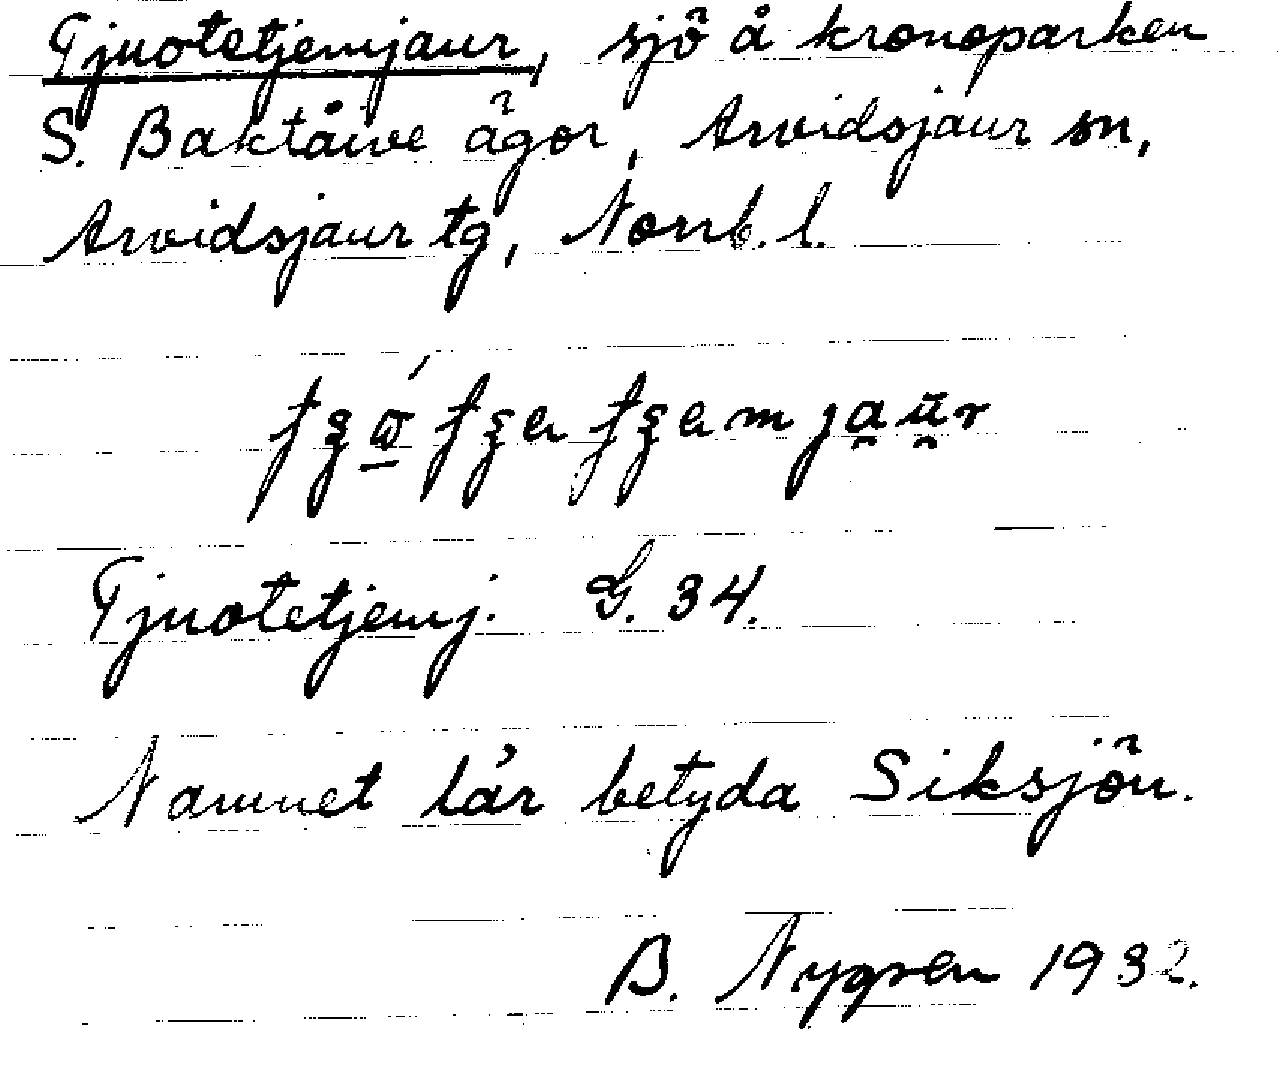 Tjuotetjemjaur, sjö å kronoparken
S. Baktåive ägor, Arvidsjaur sn,
Arvidsjaur tg, Norrb. l.
Tjuotetjemj. G. 34.
Namnet lär betyda Siksjön.
B. Nygren 1932.